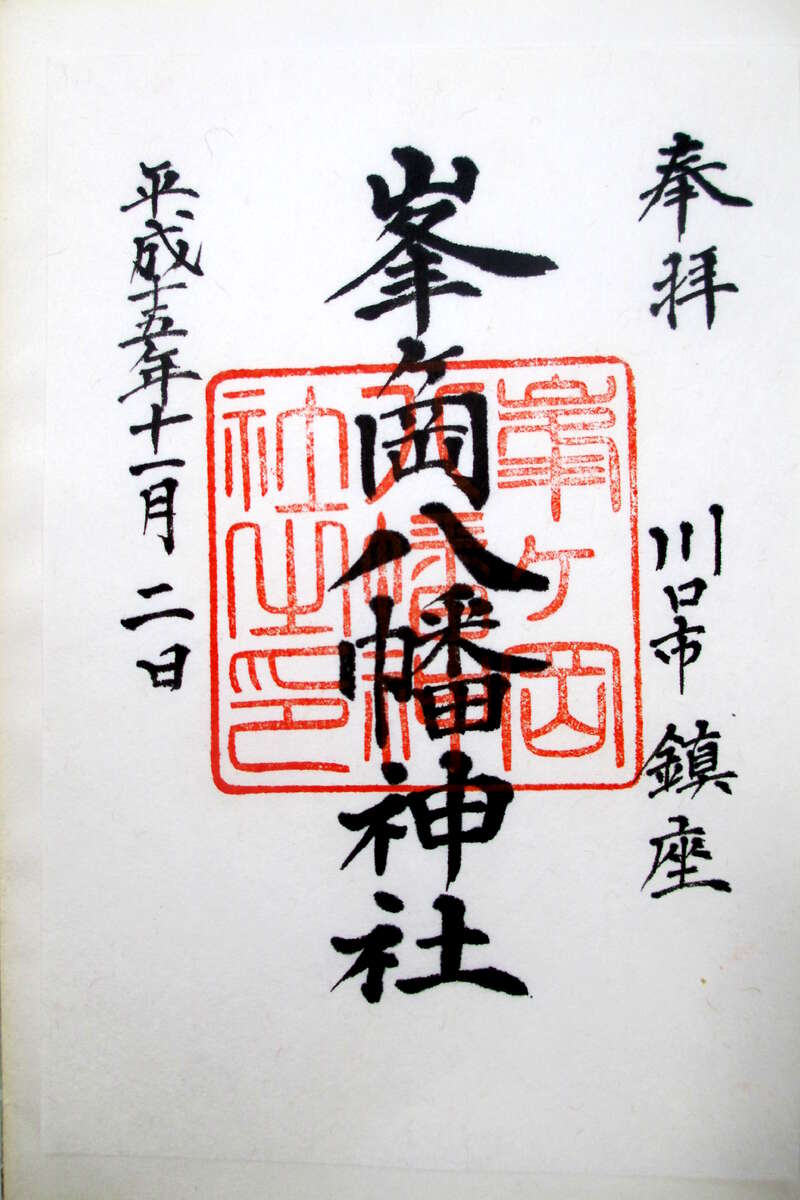 奉拝
川口市 鎮座
峯ヶ岡八幡神社
平成十五年十一月 二日
峯ヶ岡
八幡神
社之印